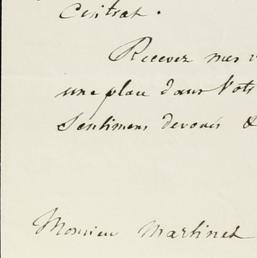 Central.
Recevez mes
une place dans Vot
Sentimens devoués &
Monsieur Martinet